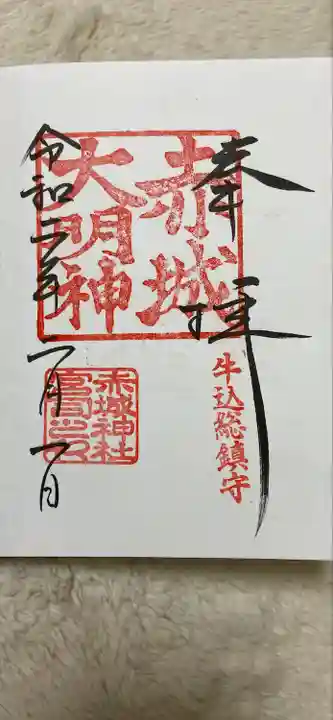 奉拝
牛込総鎮守
赤城
大明神
赤城神社
宮司之印
令和二年一月一日